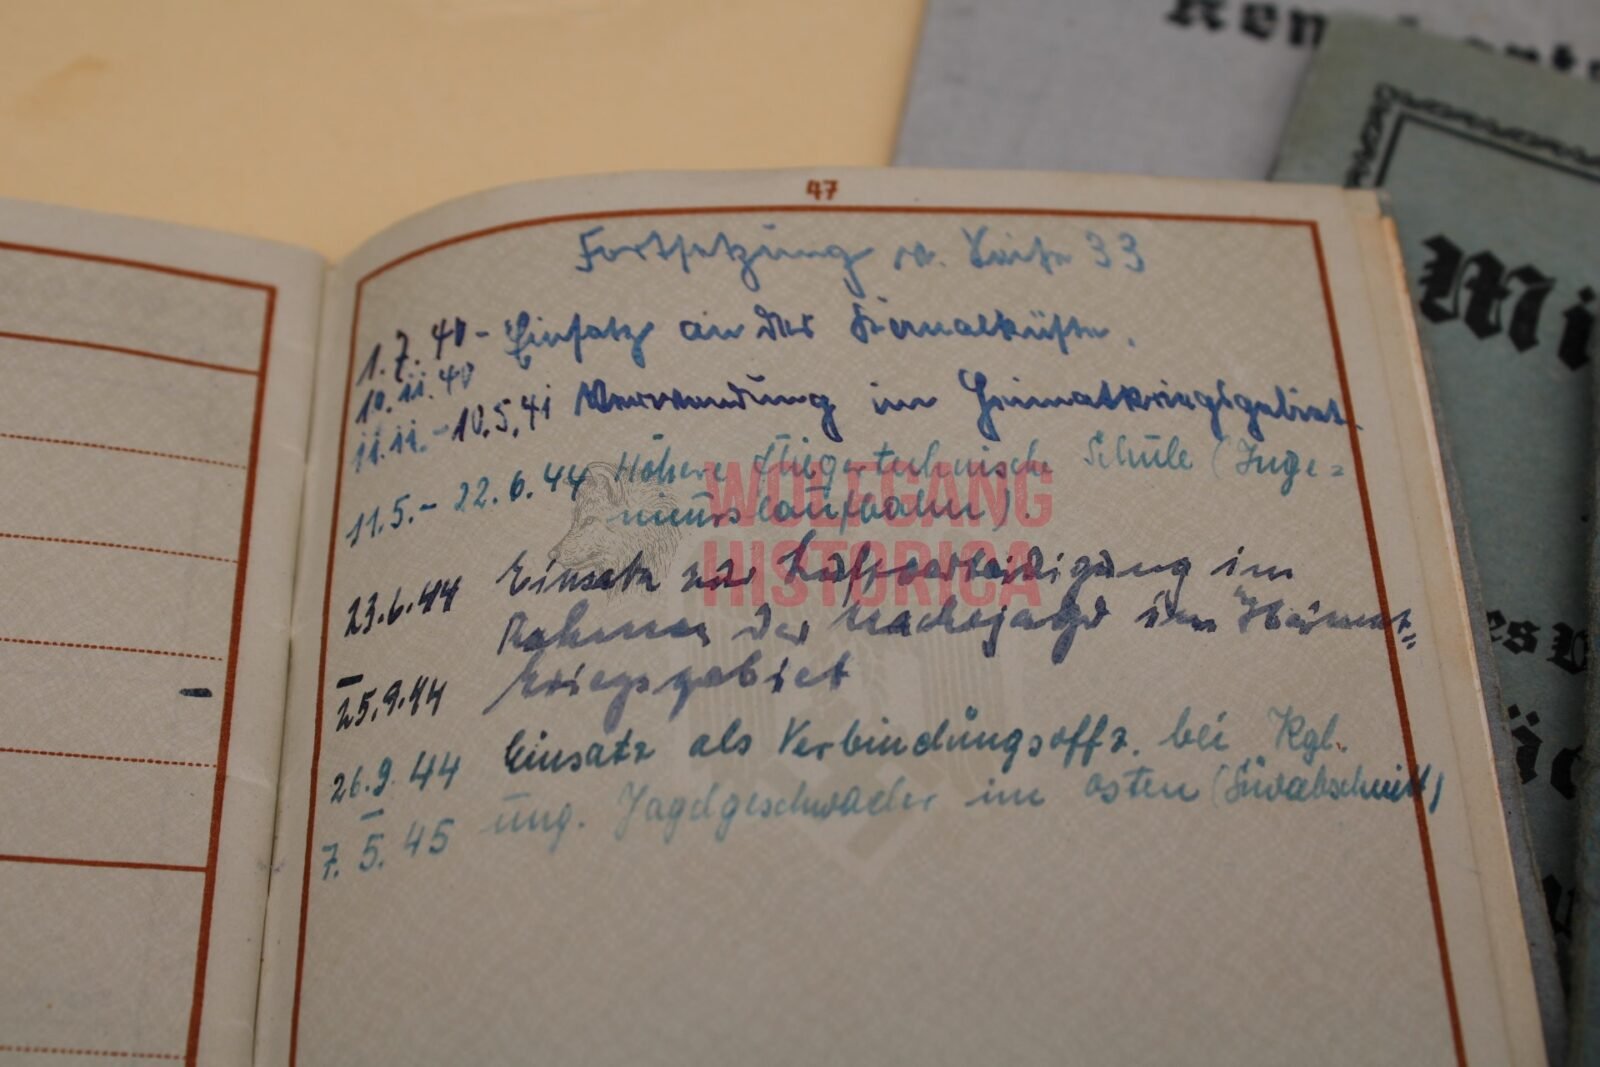 47
Fortsetzung v. Seite 33
1.7.40 - Einsatz an der Kanalküste.
10.11.40
11.11. - 10.5.41 Verwendung im Heimatkriegsgebiet.
11.5. - 22.6.44 Höhere Fliegertechnische Schule (Inge=
nieurslaufbahn).
23.6.44 Einsatz zur Luftverteidigung im
Rahmen der Nachtjagd im Heimat=
– kriegsgebiet
25.9.44
26.9.44 Einsatz als Verbindungsoffz. bei Kgl.
– ung. Jagdgeschwader im Osten (Südabschnitt)
7.5.45
WOLFGANG
HISTORICA
Mi
es